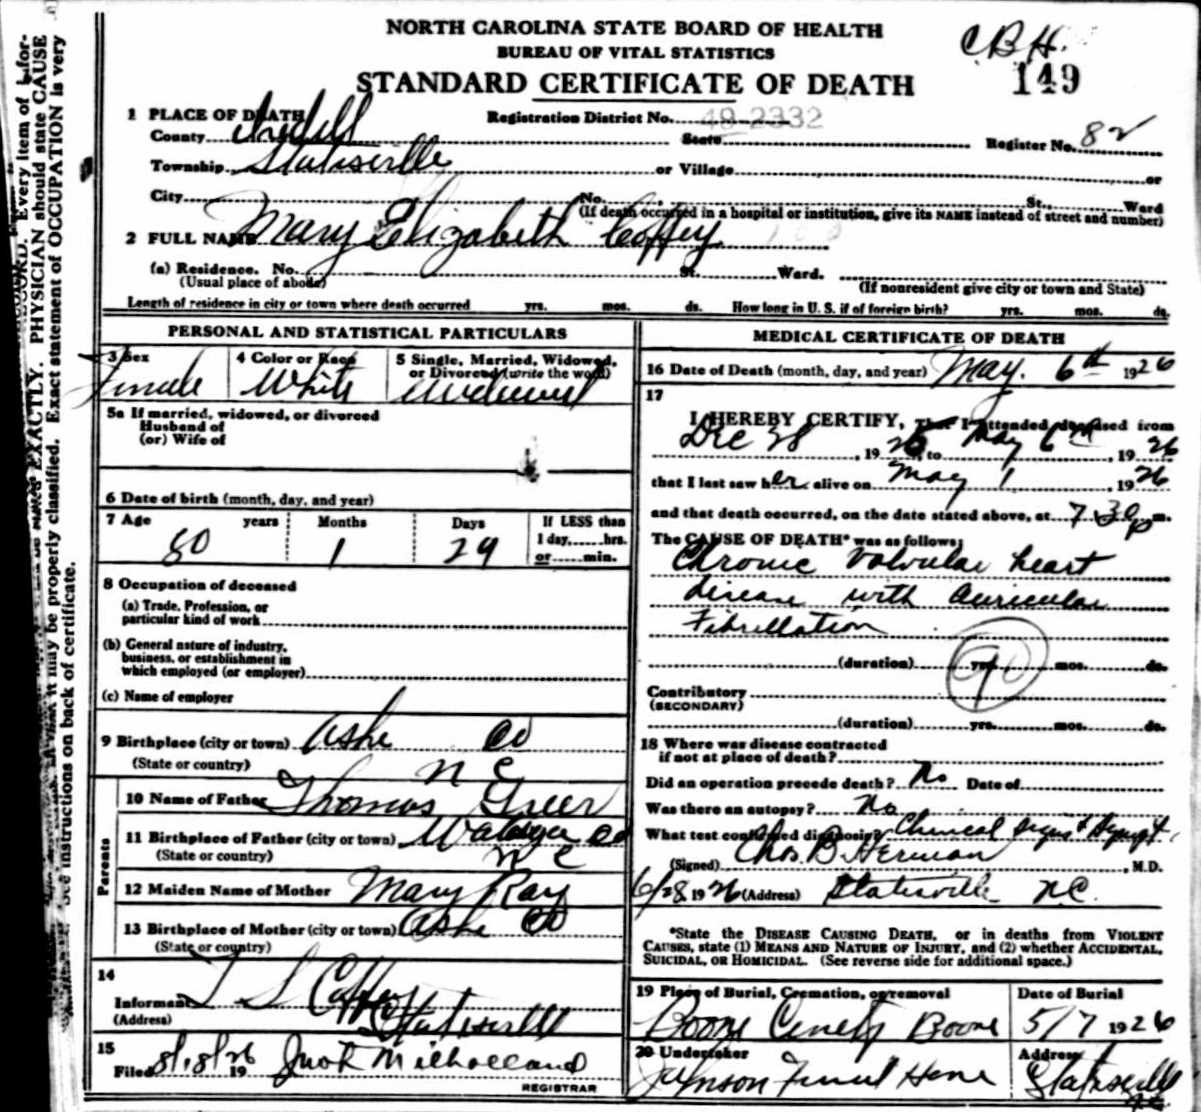 NORTH CAROLINA STATE BOARD OF HEALTH
BUREAU OF VITAL STATISTICS
STANDARD CERTIFICATE OF DEATH
C B H.
149
1 PLACE OF DEATH
Registration District No. 49-2332
County Iredell State Register No. 82
Township Statesville or Village or
City No. St. Ward
(If death occurred in a hospital or institution, give its NAME instead of street and number)
2 FULL NAME Mary Elizabeth Coffey
(a) Residence. No. St. Ward.
(Usual place of abode) (If nonresident give city or town and State)
Length of residence in city or town where death occurred yrs. mos. ds. How long in U. S. if of foreign birth? yrs. mos. ds.
PERSONAL AND STATISTICAL PARTICULARS
3 Sex 4 Color or Race 5 Single, Married, Widowed, or Divorced (write the word)
Female White Widowed
5a If married, widowed, or divorced
Husband of
(or) Wife of
6 Date of birth (month, day, and year)
7 Age years Months Days If LESS than
1 day, hrs.
or min.
80 1 29
8 Occupation of deceased
(a) Trade, Profession, or
particular kind of work
(b) General nature of industry,
business, or establishment in
which employed (or employer)
(c) Name of employer
9 Birthplace (city or town) Ashe Co
(State or country) N C
Parents
10 Name of Father Thomas Greer
11 Birthplace of Father (city or town) Watauga Co
(State or country) N C
12 Maiden Name of Mother Mary Ray
13 Birthplace of Mother (city or town) Ashe Co
(State or country)
14
Informant T S Coffey
(Address) Statesville
15
Filed 8/18/26 19 Jno L Milholland
REGISTRAR
MEDICAL CERTIFICATE OF DEATH
16 Date of Death (month, day, and year) May. 6th 1926
17
I HEREBY CERTIFY, That I attended deceased from
Dec 28, 1925, to May 6th, 1926
that I last saw her alive on May 1, 1926
and that death occurred, on the date stated above, at 7 30 p m.
The CAUSE OF DEATH* was as follows:
Chronic Valvular heart
disease with auricular
Fibrillation
(duration) yrs. mos. ds.
90
Contributory
(SECONDARY)
(duration) yrs. mos. ds.
18 Where was disease contracted
if not at place of death?
Did an operation precede death? No Date of
Was there an autopsy? No
What test confirmed diagnosis? Clinical signs &
(Signed) Chas. B. Herman, M.D.
6/28 1926 (Address) Statesville N.C.
*State the DISEASE CAUSING DEATH, or in deaths from VIOLENT
CAUSES, state (1) MEANS AND NATURE OF INJURY, and (2) whether ACCIDENTAL,
SUICIDAL, OR HOMICIDAL. (See reverse side for additional space.)
19 Place of Burial, Cremation, or removal Date of Burial
Boone Cemety Boone 5/7 1926
20 Undertaker Address
Johnson Funeral Home Statesville
N.C.
Every item of infor-
PHYSICIAN should state CAUSE
EXACTLY. Exact statement of OCCUPATION is very
it may be properly classified.
See instructions on back of certificate.